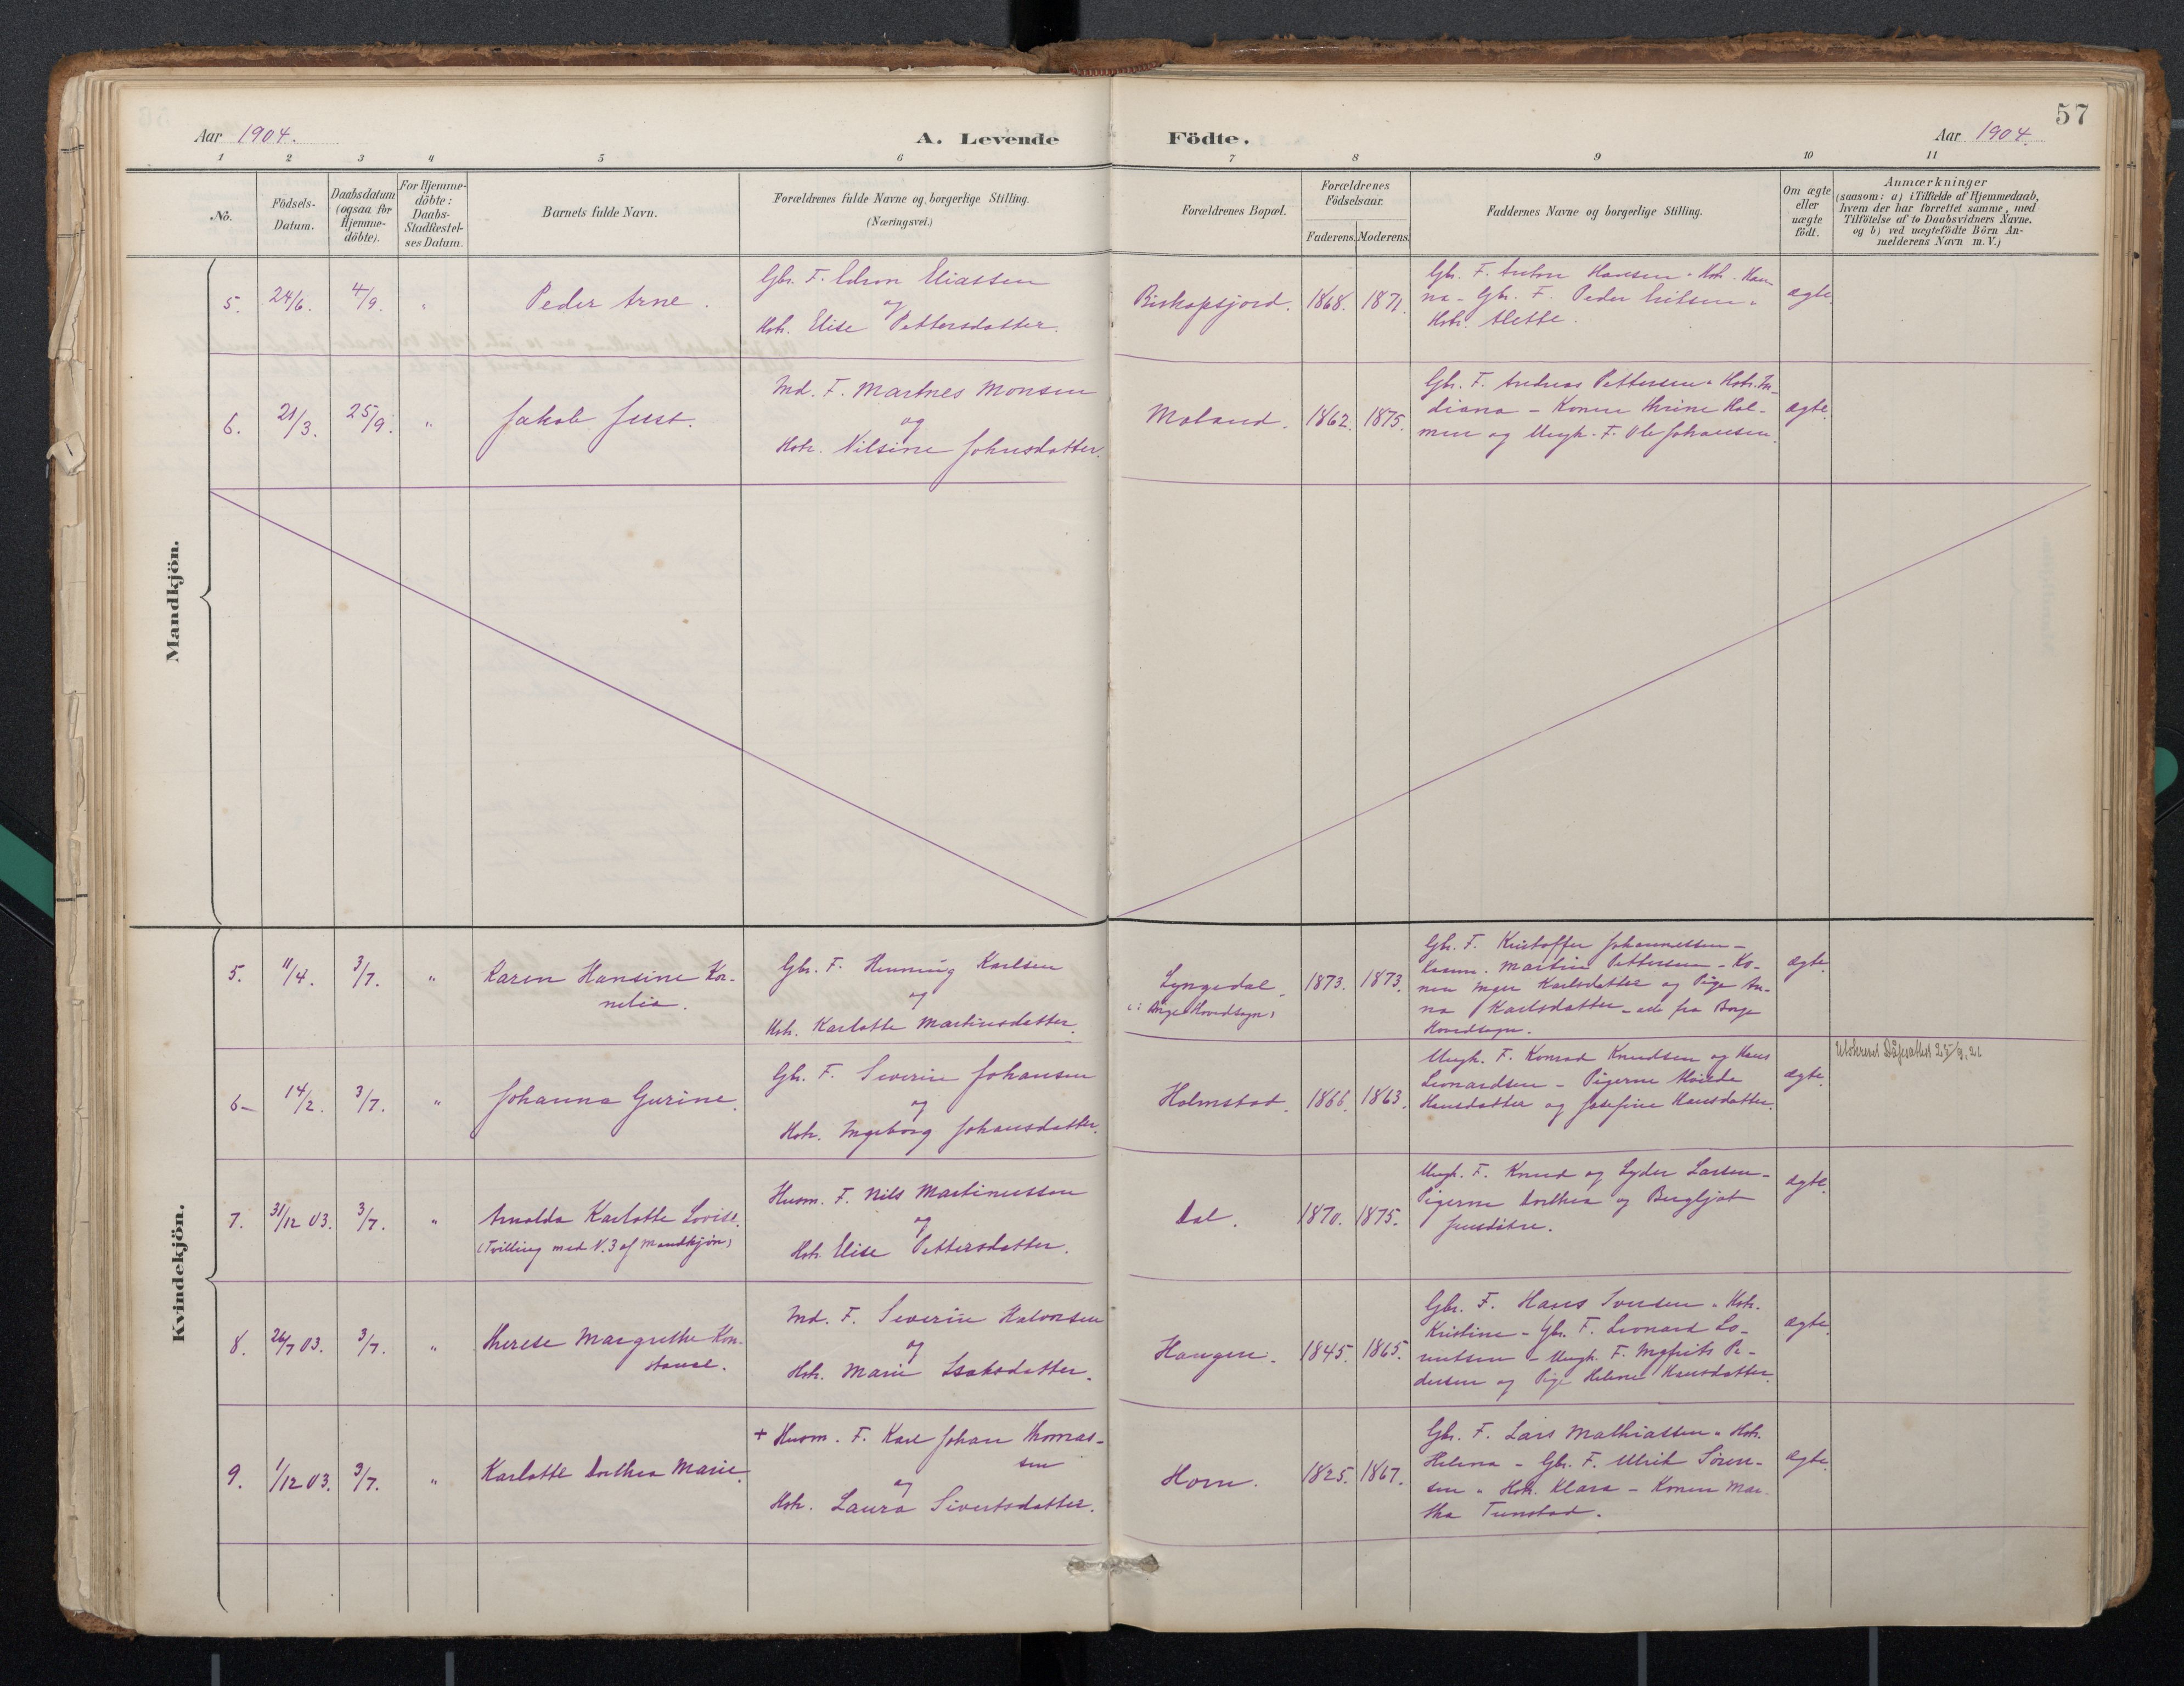 57
Aar 1904.
A. Levende Födte.
Aar 1904.
1 2 3 4 5 6 7 8 9 10 11
No.
Födsels-
Datum.
Daabsdatum
(ogsaa for
Hjemme-
döbte).
For Hjemme-
döbte:
Daabs-
Stadfæstel-
ses Datum.
Barnets fulde Navn.
Forældrenes fulde Navne og borgerlige Stilling.
(Næringsvei.)
Forældrenes Bopæl.
Forældrenes
Födselsaar.
Faderens. Moderens.
Faddernes Navne og borgerlige Stilling.
Om ægte
eller
uægte
födt.
Anmærkninger
(saasom: a) i Tilfælde af Hjemmedaab,
hvem der har forrettet samme, med
Tilföielse af to Daabsvidners Navne.
og b) ved uægtefödte Börn An-
melderens Navn m. V.)
Mandkjön.
5. 24/6. 4/9. "
Peder Arne.
Gbr. F. Edron Eliassen
og
Hstr. Elise Pettersdatter.
Biskopsjord. 1868. 1871.
Gbr. F. Anton Hansen " Hstr. Han-
na - Gbr. F. Peder
Hstr. Alette.
ægte.
6. 21/3. 25/9. "
Jakob Just.
Ind. F. Martnes Monsen
og
Hstr. Nilsine Johnsdatter.
Moland. 1862. 1875.
Gbr. F. Andreas Pettersen " Hstr. In-
diana - Konen Trine Hol-
men og Ungk. F. Ole Johansen.
ægte.
Kvindekjön.
5. 11/4. 3/7. "
Karen Hansine Kor-
nelia.
Gbr. F. Henning Karlsen
og
Hstr. Karlotte Martinusdatter.
Lyngedal.
(: Borge Hovedsogn)
1873. 1873.
Gbr. F. Kristoffer Johannessen -
Martin Pettersen - Ko-
nen Inger Karlsdatter og Pige An-
na Karlsdatter - alle fra Borge
Hovedsogn.
ægte.
6- 14/2. 3/7. "
Johanna Gurine.
Gbr. F. Severin Johansen
og
Hstr. Ingeborg Johansdatter.
Holmstad. 1866. 1863.
Ungk. F. Konrad Knudsen og Hans
Leonardsen - Pigerne
Hansdatter og Josefine Hansdatter.
ægte.
Utskrevet Dåpsattest 25/9. 21
7. 31/12 03. 3/7. "
Arnolda Karlotte Lovise.
(Tvilling med N. 3 af Mandkjön)
Husm. F. Nils Martinussen
og
Hstr. Elise Pettersdatter.
Dal. 1870. 1875.
Ungk. F. Knud og Lyder Larsen -
Pigerne Dorthea og Bergljot
Jensdötre.
ægte.
8. 26/7 03. 3/7. "
Therese Margrethe Kon-
stanse.
Ind. F. Severin Halvorsen
og
Hstr. Marie Isaksdatter.
Haugen. 1845. 1865.
Gbr. F. Hans Iversen " Hstr.
Kristine - Gbr. F. Leonard Lo-
rentsen - Ungk. F. Ingfrits Pe-
dersen og Pige Helene Hansdatter.
ægte.
9. 1/12 03. 3/7. "
Karlotte Dorthea Marie.
+ Husm. F. Karl Johan Thomas-
sen
og
Hstr. Laura Sivertsdatter.
Horn. 1825. 1867.
Gbr. F. Lars Mathiassen " Hstr.
Helena - Gbr. F. Ulrik Sören-
sen " Hstr. Klara - Konen Mar-
tha Tunstad.
ægte.